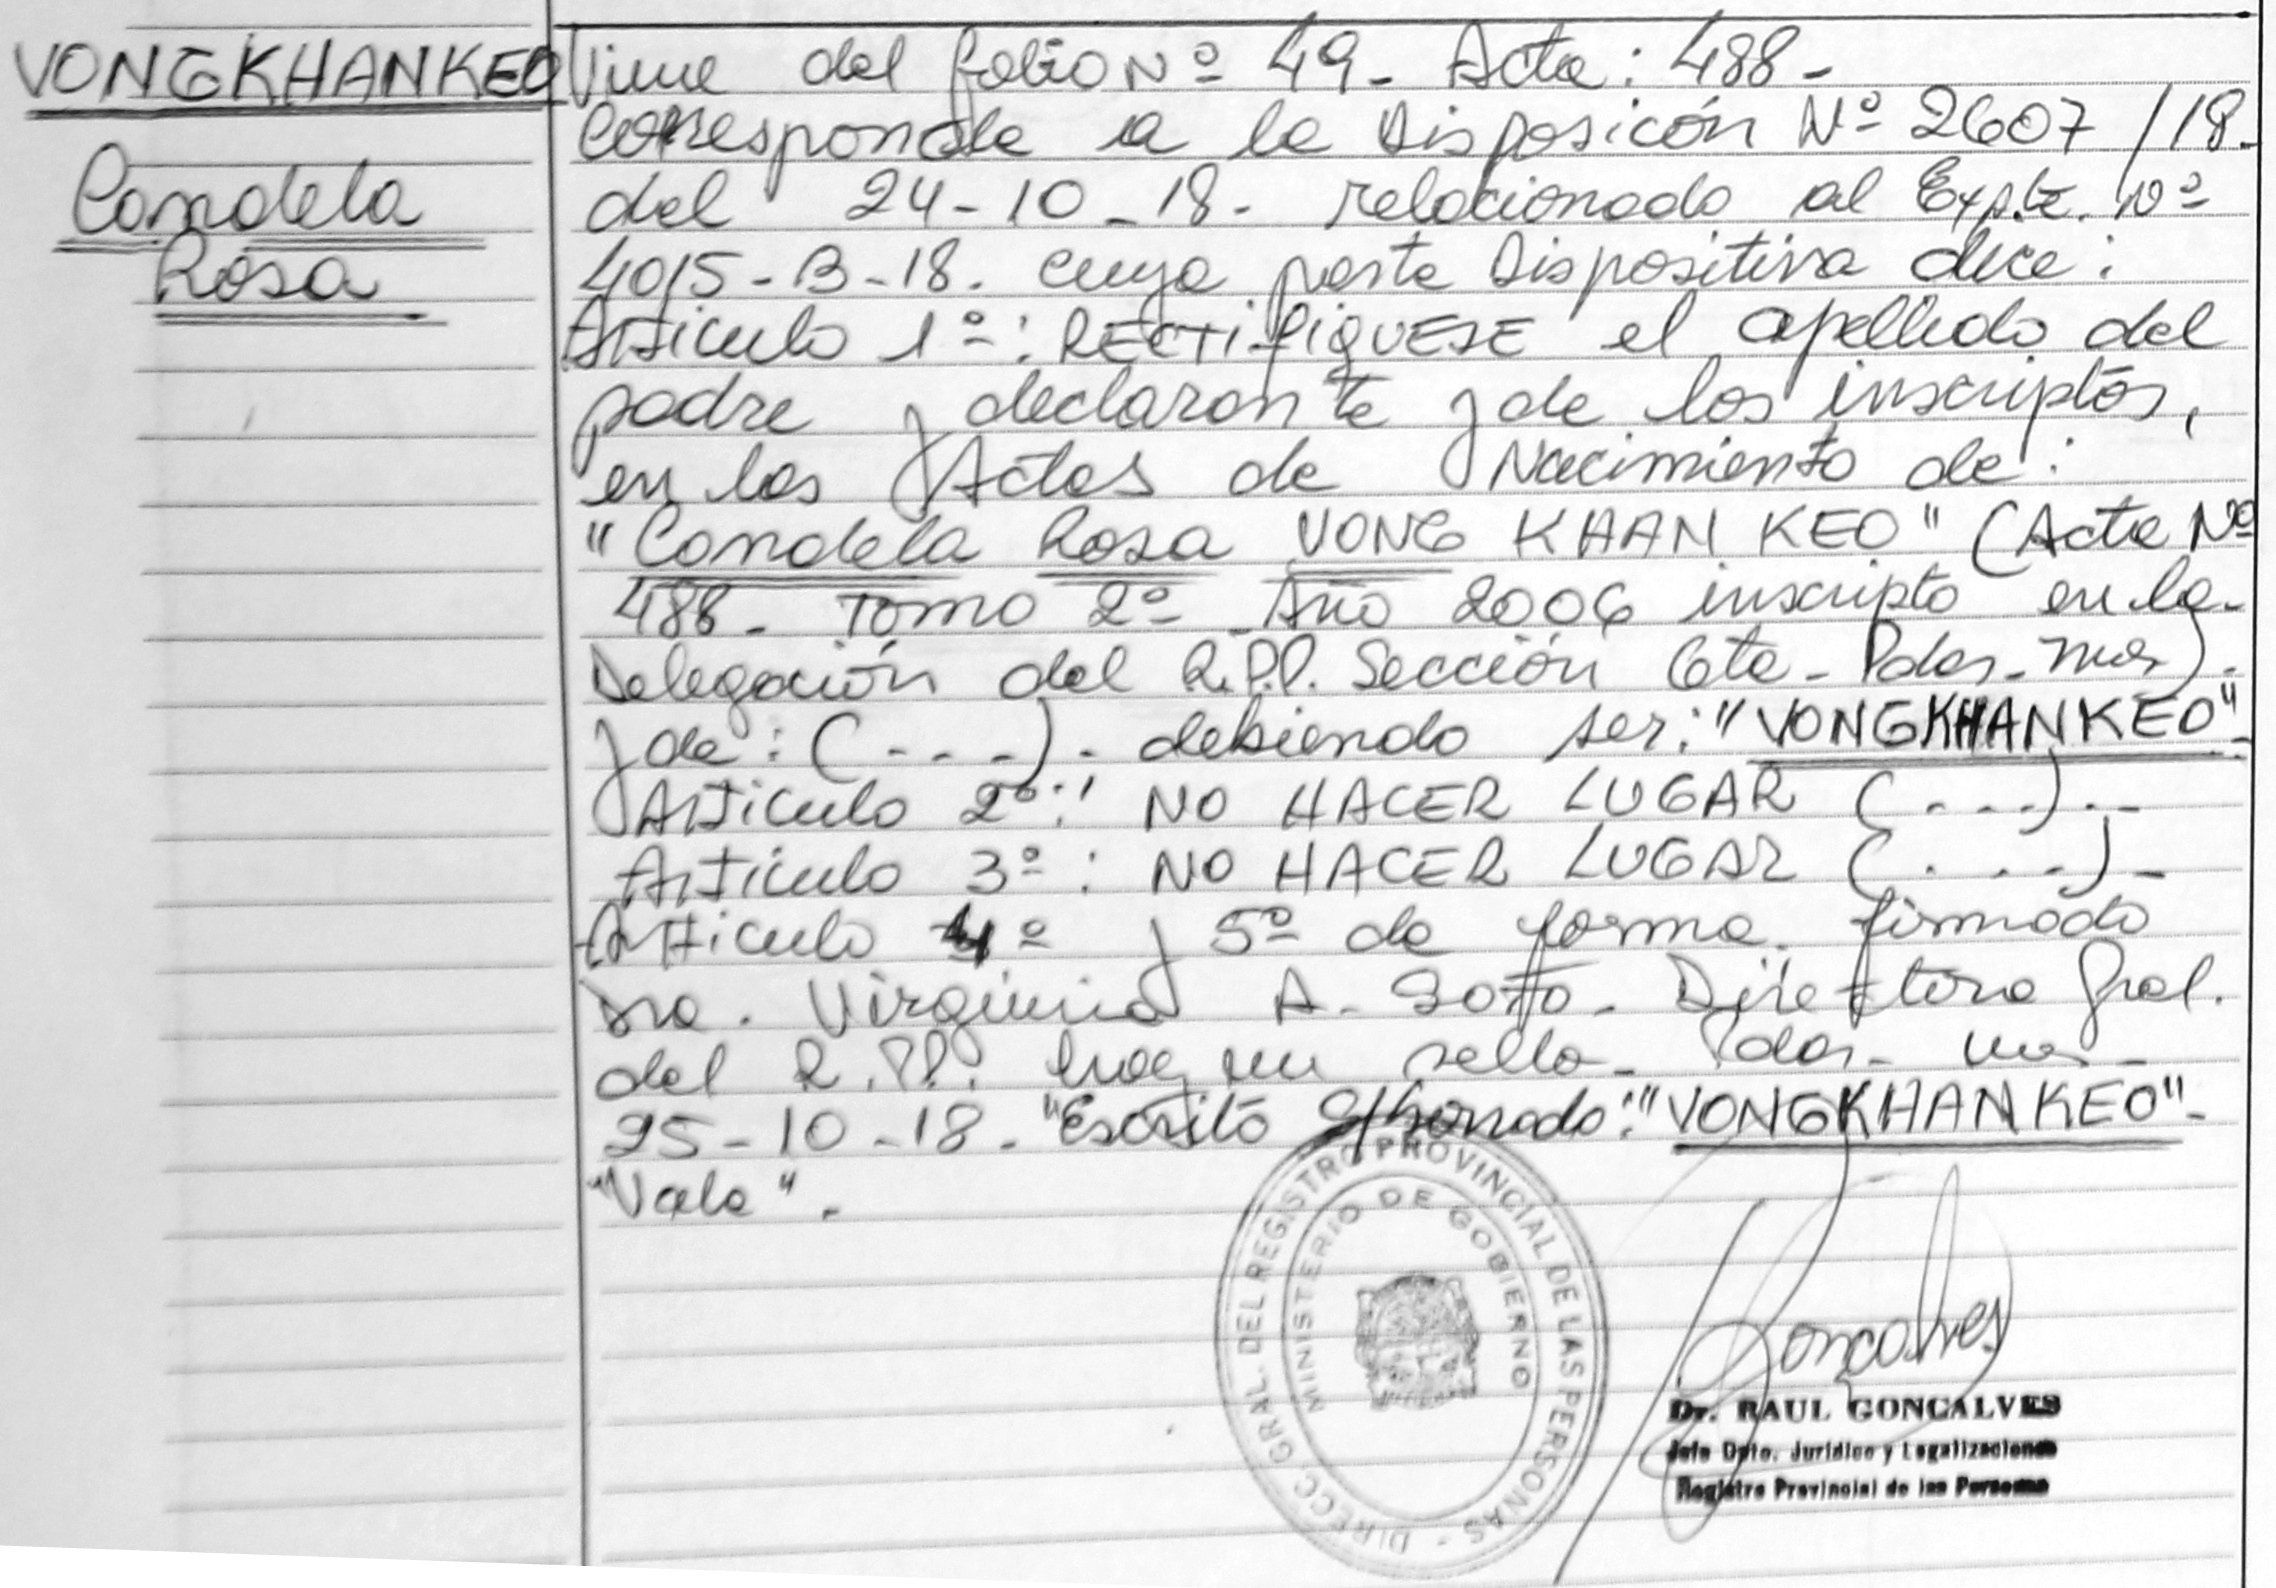 VONGKHANKEO
Candela
Rosa
Viene del folio Nº 49- Acta: 488-
Corresponde a la Disposicón Nº 2607/18-
del 24-10-18- relacionado al Expte. Nº
4015-B-18. cuya parte Dispositiva dice:
Artículo 1º: RECTIFIQUESE el apellido del
padre y declarante y de los inscriptos,
en las Actas de Nacimiento de:
"Candela Rosa VONG KHAN KEO" (Acta Nº
488- Tomo 2º- Año 2006 inscripto en la-
Delegación del R.P.P. Sección 6ta- Pdas-Mnes)-
y de: (---)- debiendo ser: "VONGKHANKEO"-
Artículo 2º: NO HACER LUGAR (---).-
Artículo 3º: NO HACER LUGAR (...-)-
Artículo 4º y 5º de forma. firmado
Dra. Virginia A. Soto- Directora Gral.
del R.P.P. hay un sello- Pdas- Mnes-
25-10-18- "Escrito S/borrado": "VONGKHANKEO"-
"Vale".
DIRECC. GRAL. DEL REGISTRO PROVINCIAL DE LAS PERSONAS -
MINISTERIO DE GOBIERNO
Goncalves
Dr. RAUL GONCALVES
Jefe Dpto. Jurídico y Legalizaciones
Registro Provincial de las Personas